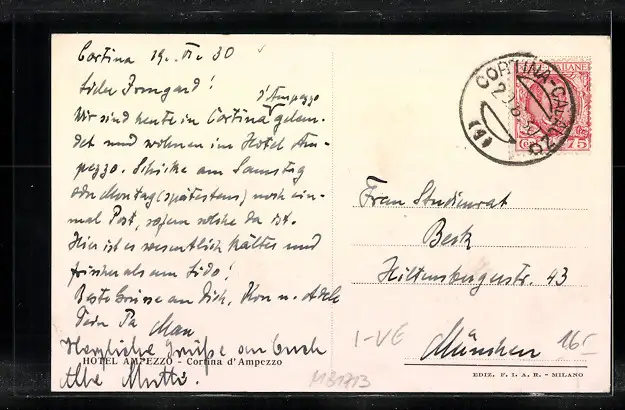 Cortina 19. VI. 30
Liebe Irmgard!
d'Ampezzo
Wir sind heute in Cortina gelan-
det und wohnen im Hotel Am-
pezzo. Schicke am Samstag
oder Montag (spätestens) noch ein-
mal Post, sofern solche da ist.
Hier ist es wesentlich kälter und
frischer als am Lido!
Beste Grüsse an Dich, u. Adele
Dein Pa
Herzliche Grüße an Euch
Alle Mutti!
HOTEL AMPEZZO - Cortina d'Ampezzo
CORTINA-CALALZO
75
Frau Studienrat
Beck
Hiltenspergerstr. 43
München
I-VE
16-
MB1713
EDIZ. F. I. A. R. - MILANO